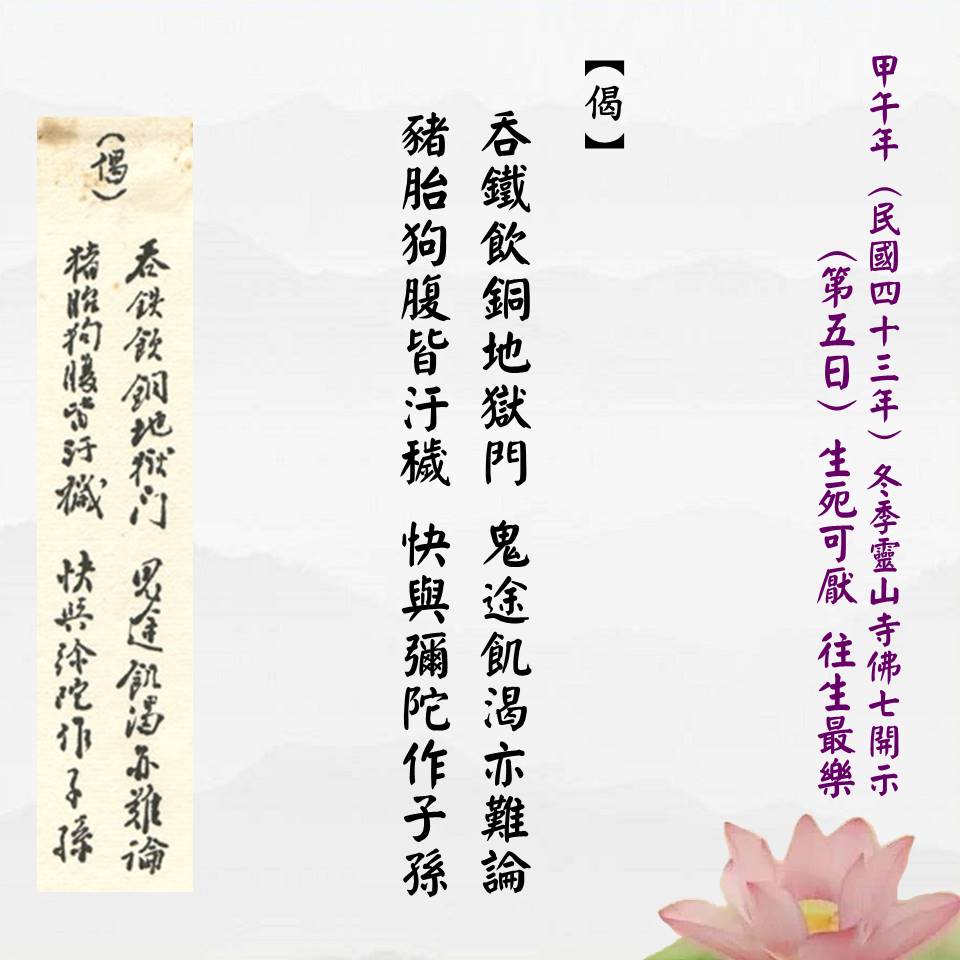 甲午年（民國四十三年）冬季靈山寺佛七開示
（第五日）生死可厭 往生最樂
【偈】
吞鐵飲銅地獄門 鬼途飢渴亦難論
豬胎狗腹皆汙穢 快與彌陀作子孫
（偈）
吞鉄飲銅地獄门 鬼途飢渴亦難論
猪胎狗腹皆汙穢 快與弥陀作子孫